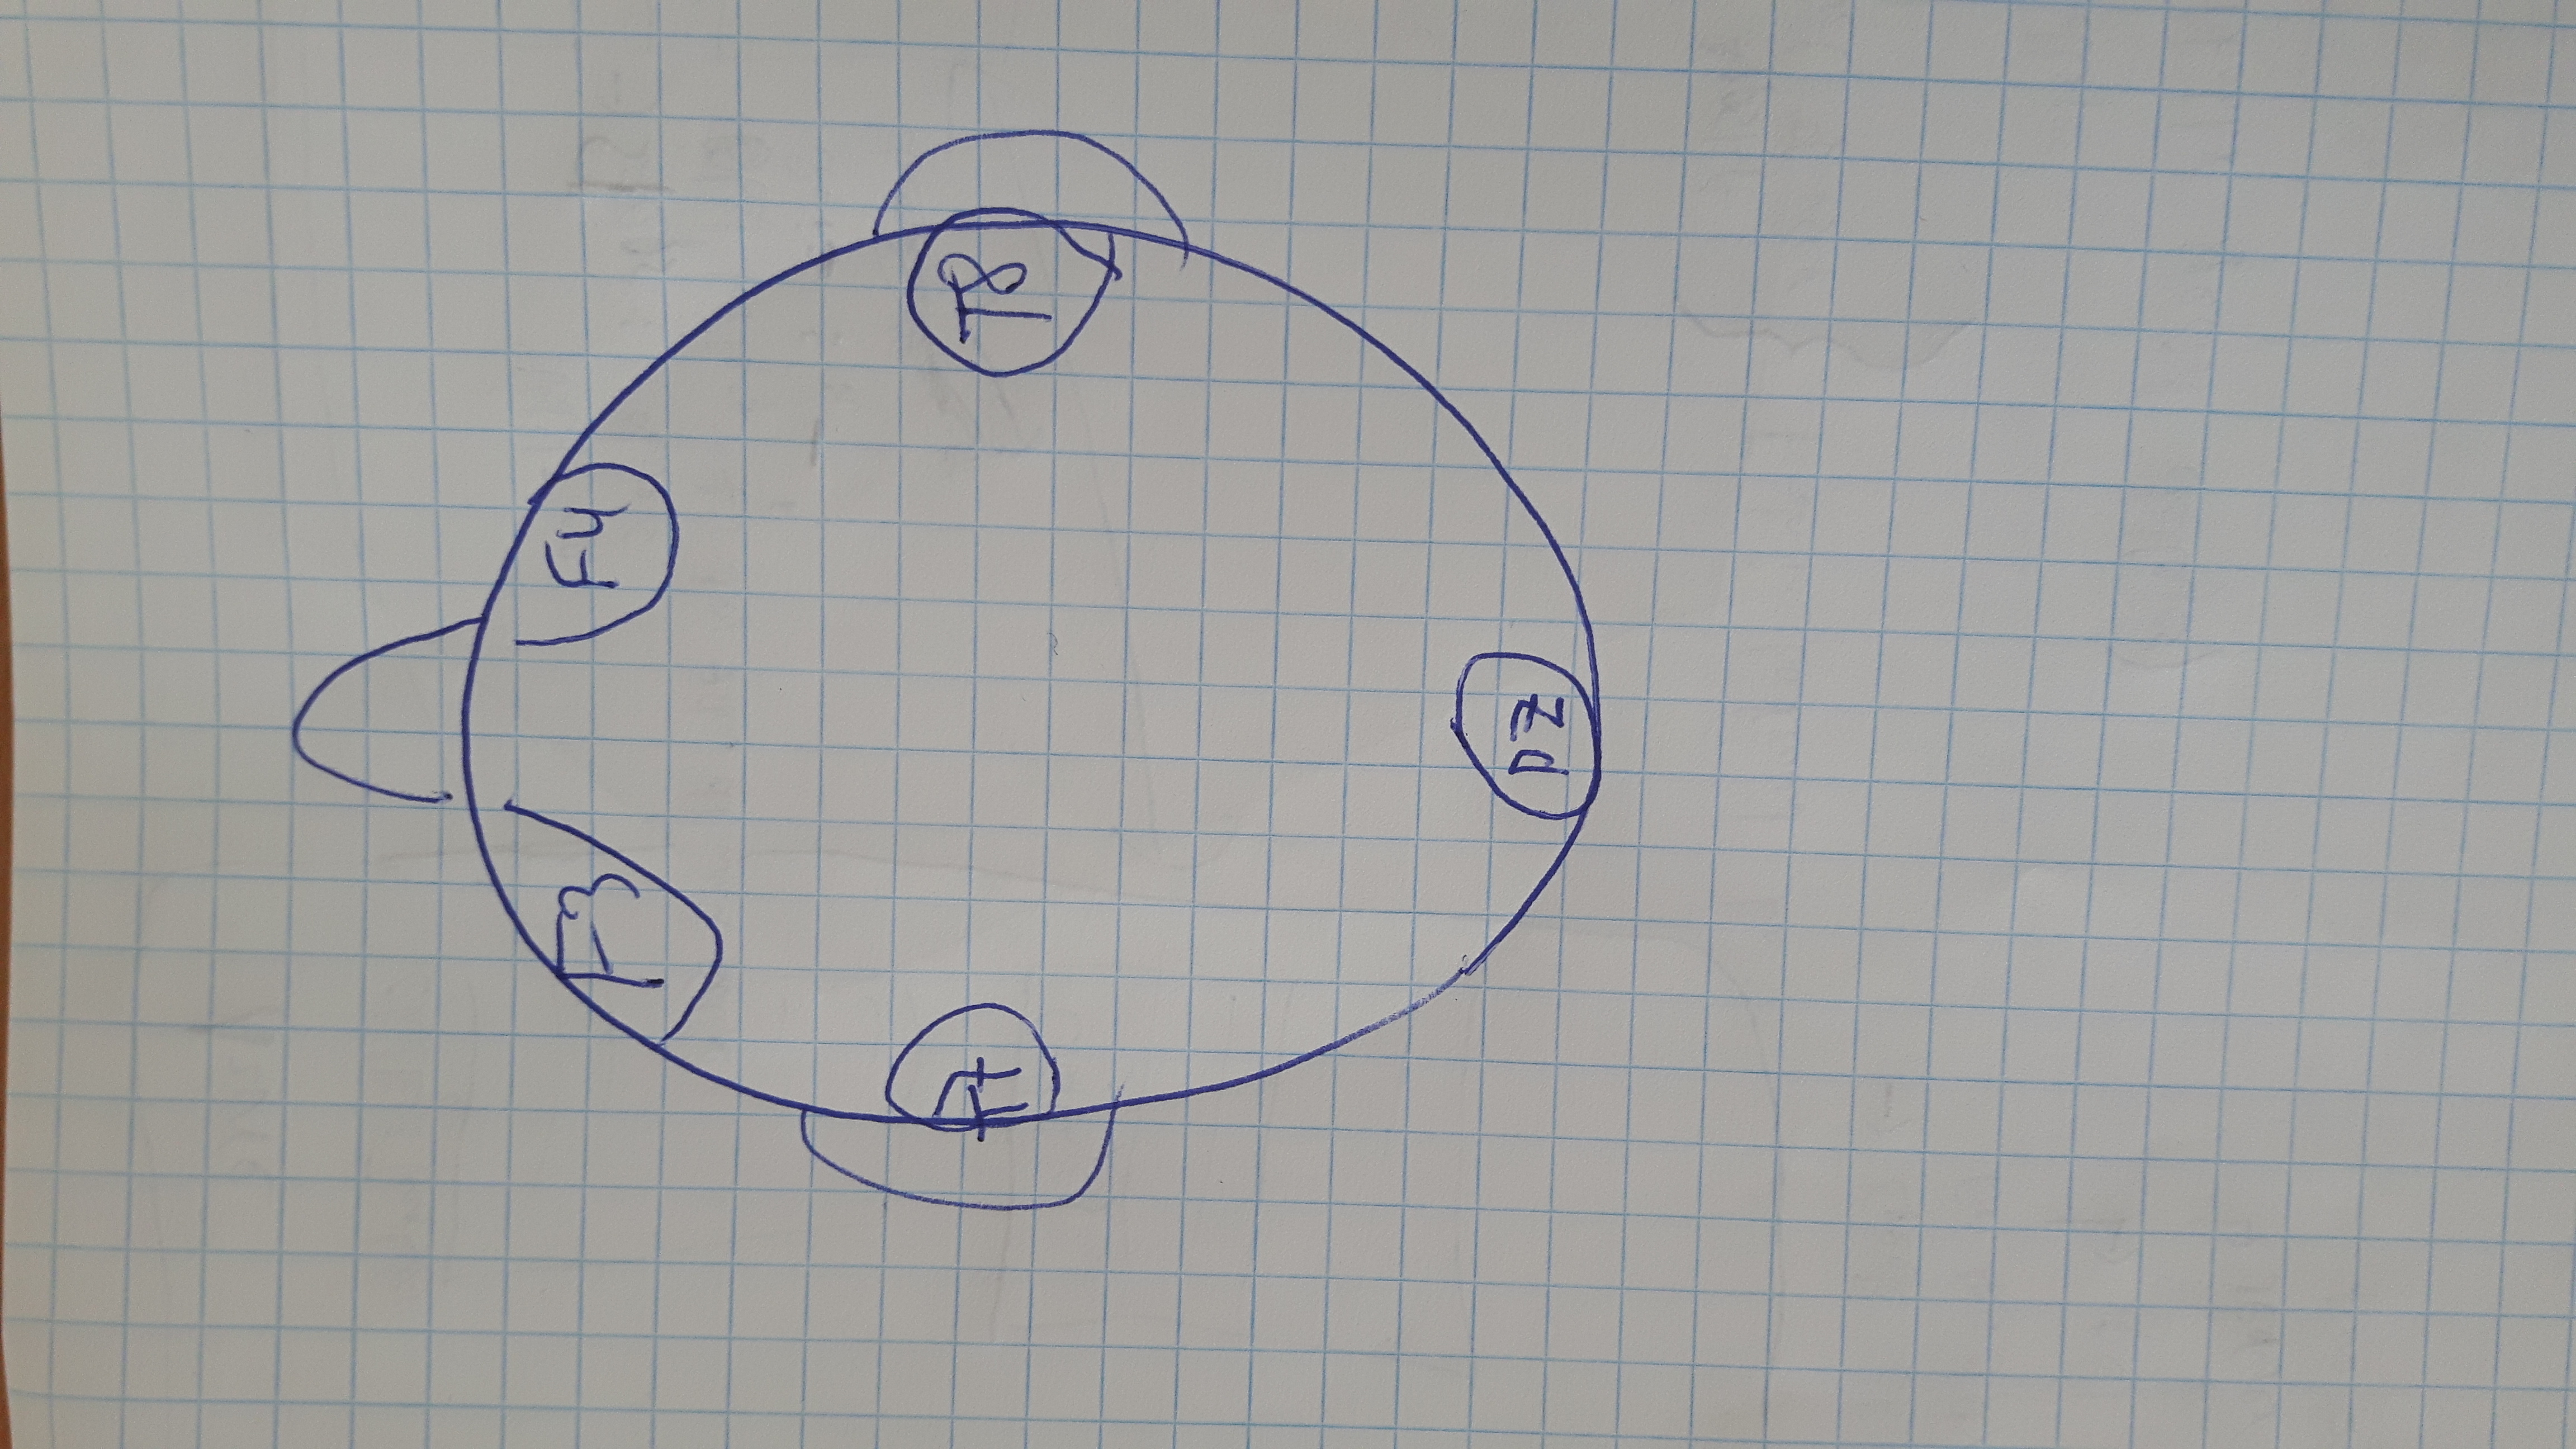 F3
F4
T7
T8
PZ